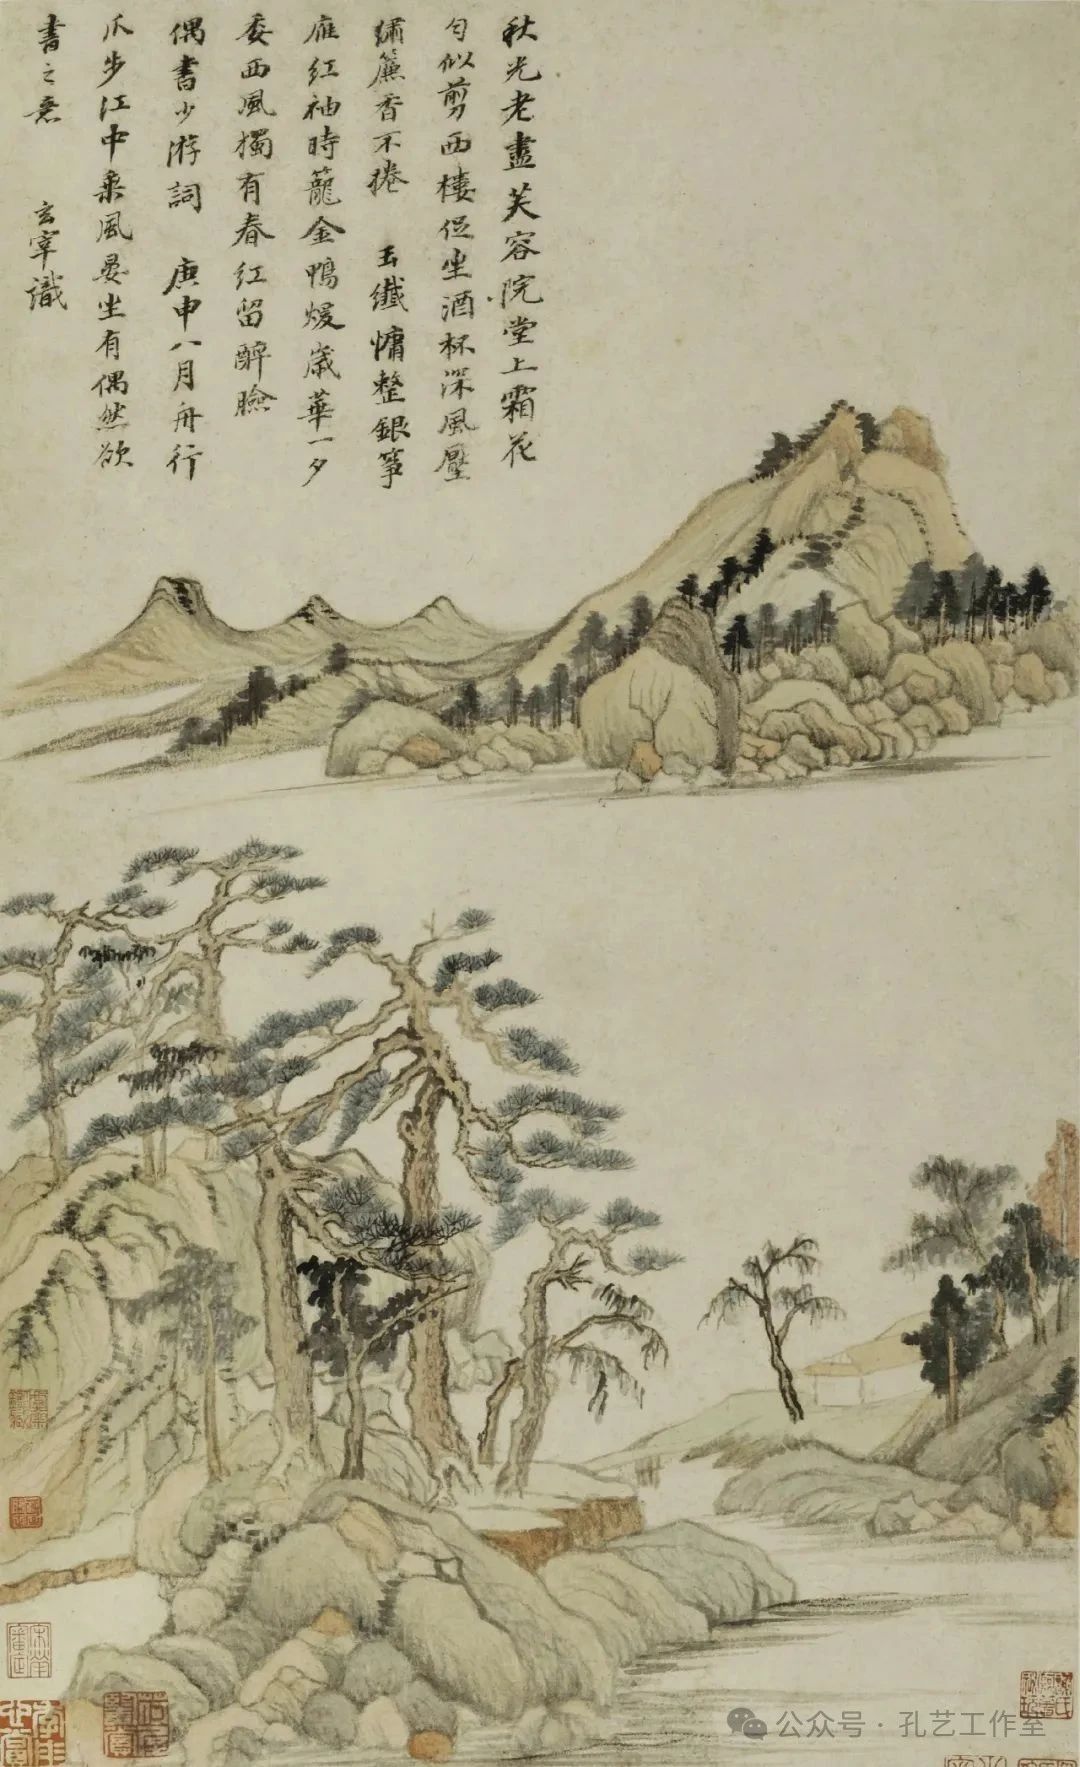 秋光老盡芙容院堂上霜花
勻似剪西樓促坐酒杯深風壓
繡簾香不捲 玉纖慵整銀箏
雁紅袖時籠金鴨煖歲華一夕
委西風獨有春紅留醉臉
偶書少游詞 庚申八月舟行
爪步江中乘風晏坐有偶然欲
書之意 玄宰識
公众号·孔艺工作室